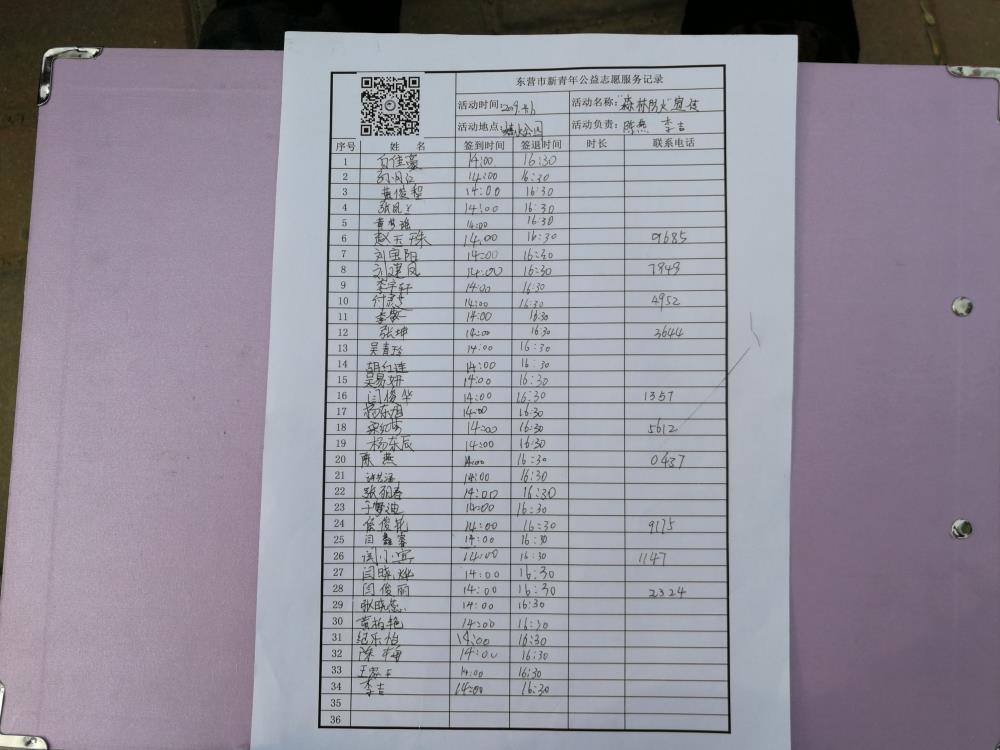 东营市新青年公益志愿服务记录
活动时间: 活动名称:"森林防火"宣传
活动地点: 活动负责:陈燕 李吉
序号 姓 名 签到时间 签退时间 时长 联系电话
1 14:00 16:30
2 14:00 16:30
3 黄俊智 14:00 16:30
4 14:00 16:30
5 14:00 16:30
6 赵玉珠 14:00 16:30 9685
7 刘宝阳 14:00 16:30
8 刘建凤 14:00 16:30 7949
9 李宇轩 14:00 16:30
10 14:00 16:30 4952
11 14:00 16:30
12 张坤 14:00 16:30 2644
13 14:00 16:30
14 胡红连 14:00 16:30
15 吴易妍 14:00 16:30
16 闫俊华 14:00 16:30 1357
17 杨东旭 14:00 16:30
18 14:00 16:30 5612
19 杨东辰 14:00 16:30
20 陈燕 14:00 16:30 0437
21 14:00 16:30
22 张丽春 14:00 16:30
23 于梦迪 14:00 16:30
24 侯俊艳 14:00 16:30 9175
25 14:00 16:30
26 14:00 16:30 1147
27 闫晓烨 14:00 16:30
28 闫俊丽 14:00 16:30 2324
29 张晓蕊 14:00 16:30
30 黄柏艳 14:00 16:30
31 纪乐怡 14:00 16:30
32 陈梅 14:00 16:30
33 14:00 16:30
34 李吉 14:00 16:30
35
36